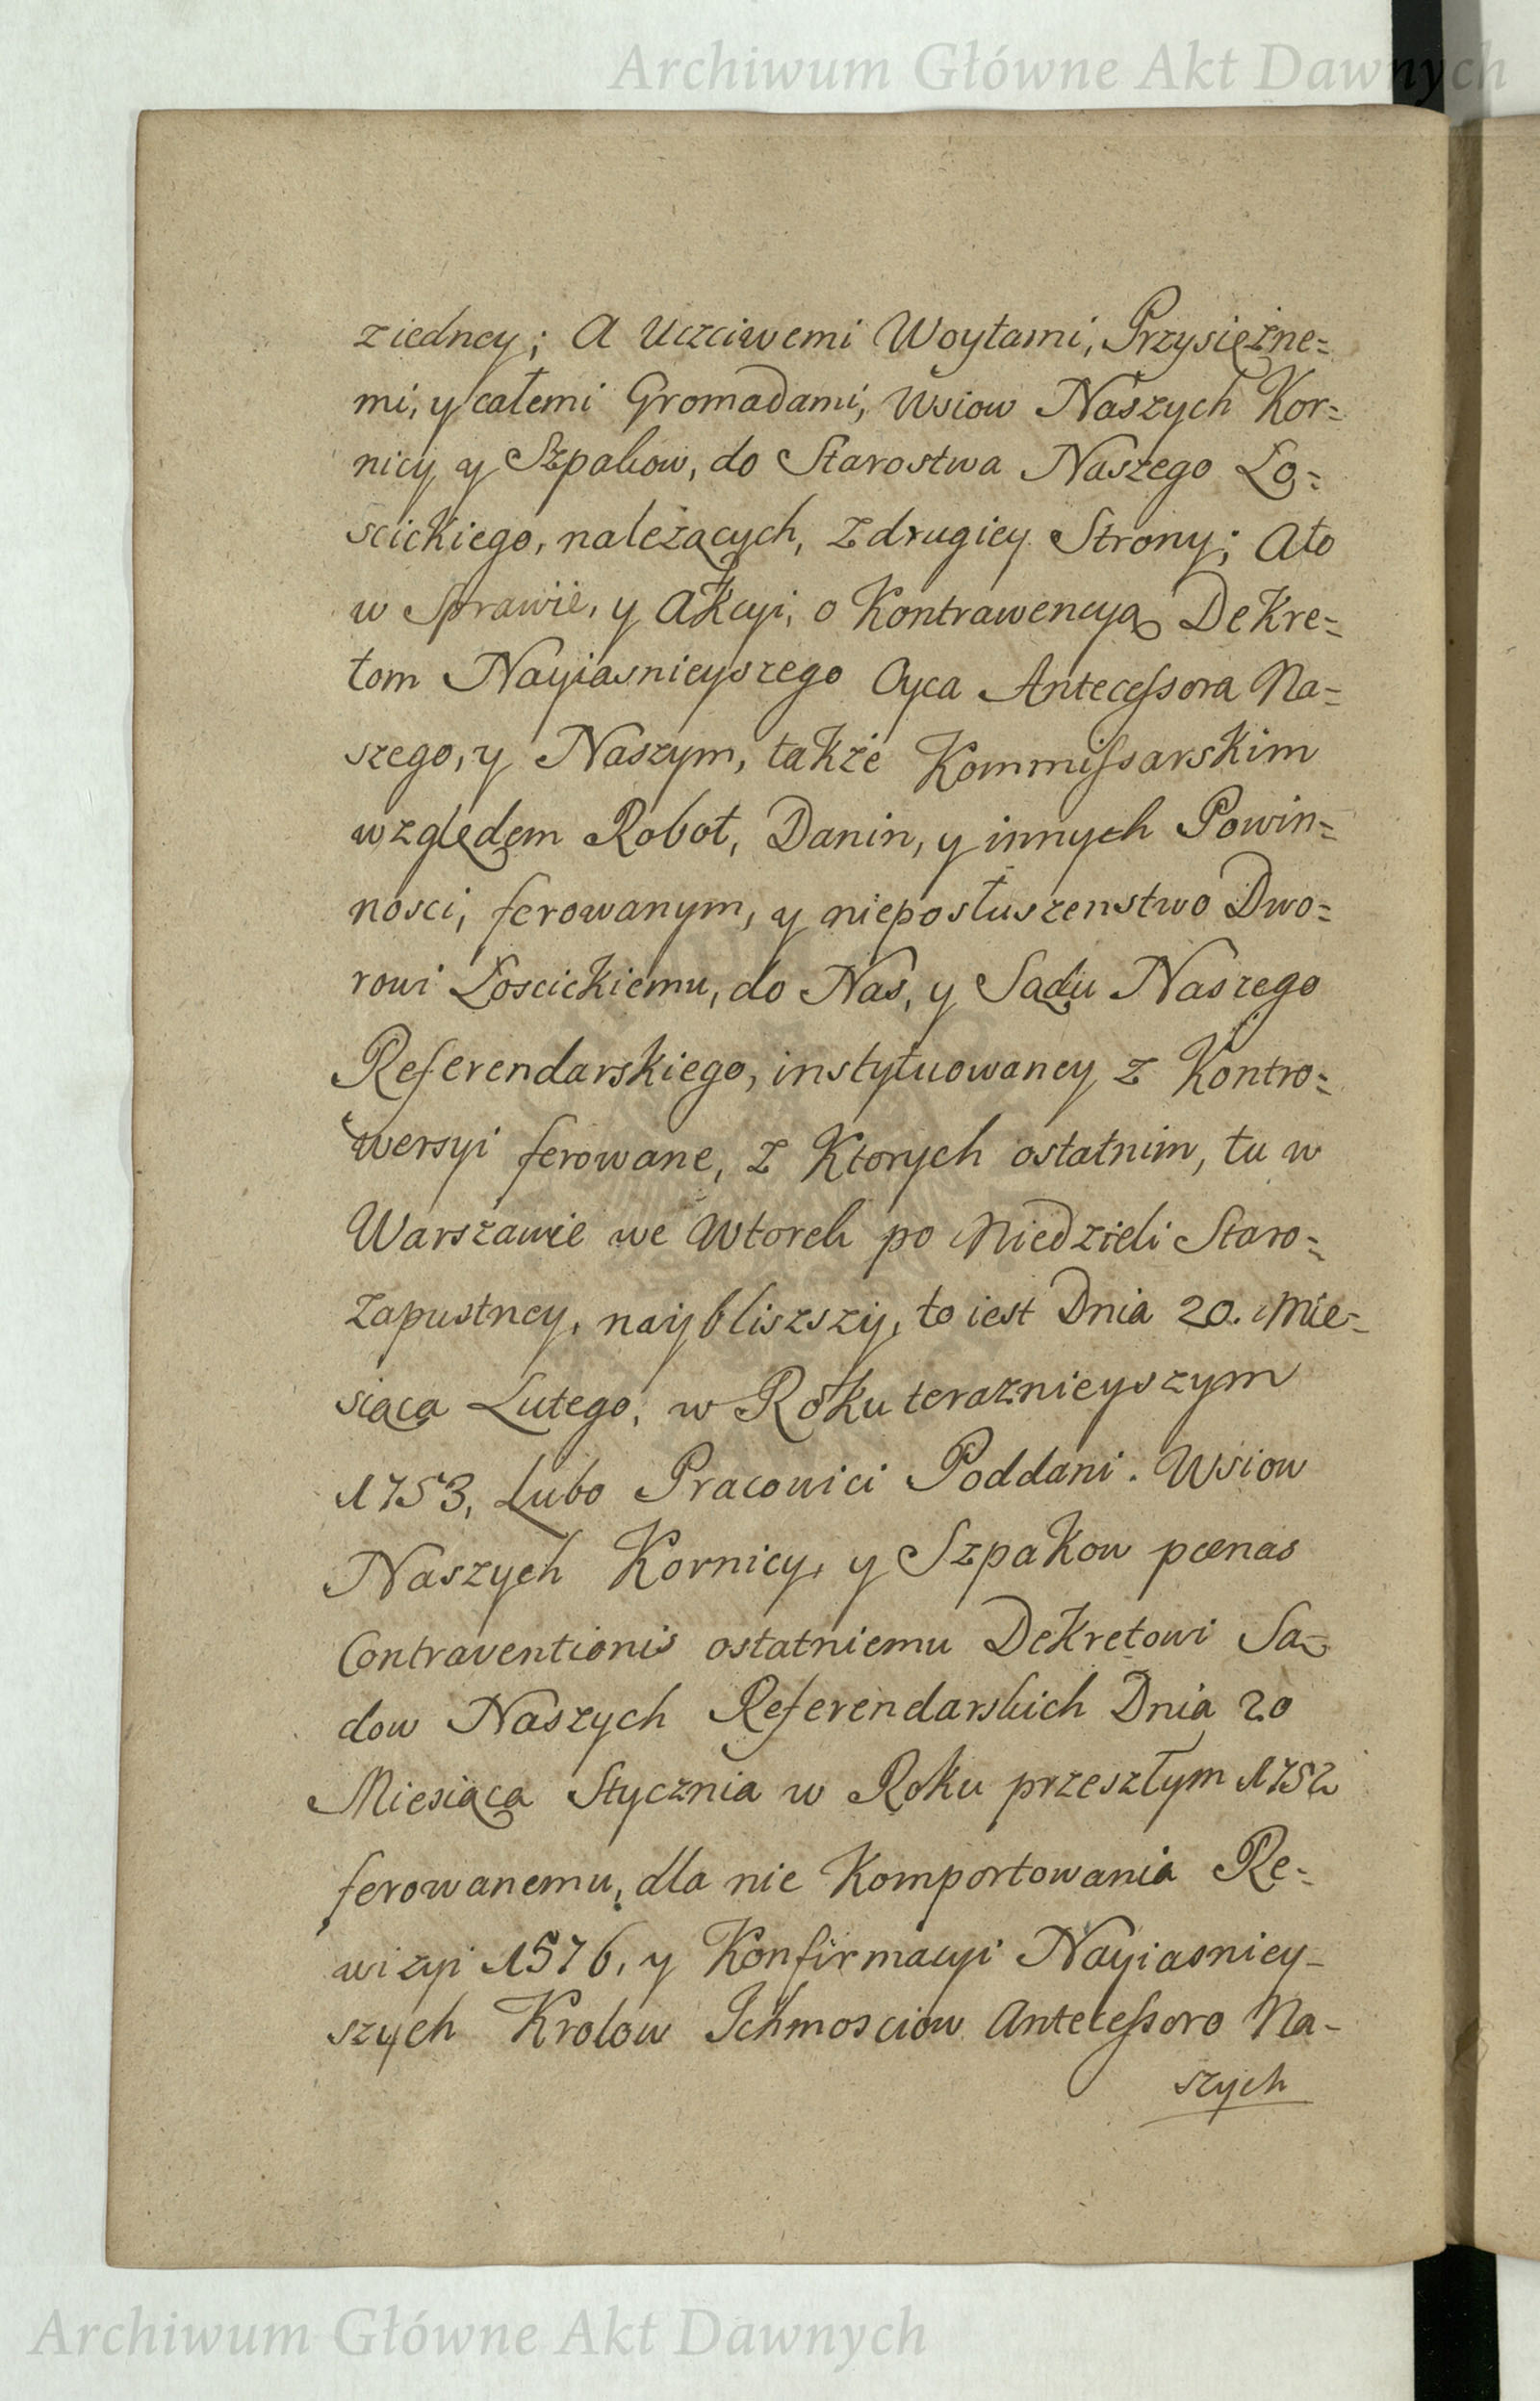 Archiwum Główne Akt Dawnych
ziedney; A Uczciwemi Woytami, Przysiężne=
mi, y całemi Gromadami, Wsiow Naszych Kor=
nicy y Szpakow, do Starostwa Naszego Ło=
scickiego, należących, z drugiey Strony; Ato
w Sprawie, y Akcyi, o Kontrawencyą Dekre=
tom Nayiasnieyszego Oyca Antecessora Na=
szego, y Naszym, także Kommissarskim
względem Robot, Danin, y innych Powin=
nosci, ferowanym, y nieposłuszenstwo Dwo=
rowi Łoscickiemu, do Nas, y Sądu Naszego
Referendarskiego, instytuowaney z Kontro=
wersyi ferowane, z Ktorych ostatnim, tu w
Warszawie we Wtorek po Niedzieli Staro=
zapustney, naybliszszy, to iest Dnia 20. Mie=
siąca Lutego, w Roku teraznieyszym
1753, Lubo Pracowici Poddani. Wsiow
Naszych Kornicy, y Szpakow pœnas
Contraventionis ostatniemu Dekretowi Są=
dow Naszych Referendarskich Dnia 20
Miesiąca Stycznia w Roku przeszłym 1752
ferowanemu, dla nie Komportowania Re=
wizyi 1576, y Konfirmacyi Nayiasniey-
szych Krolow Ichmosciow Antecessoro Na-
szych
Archiwum Główne Akt Dawnych